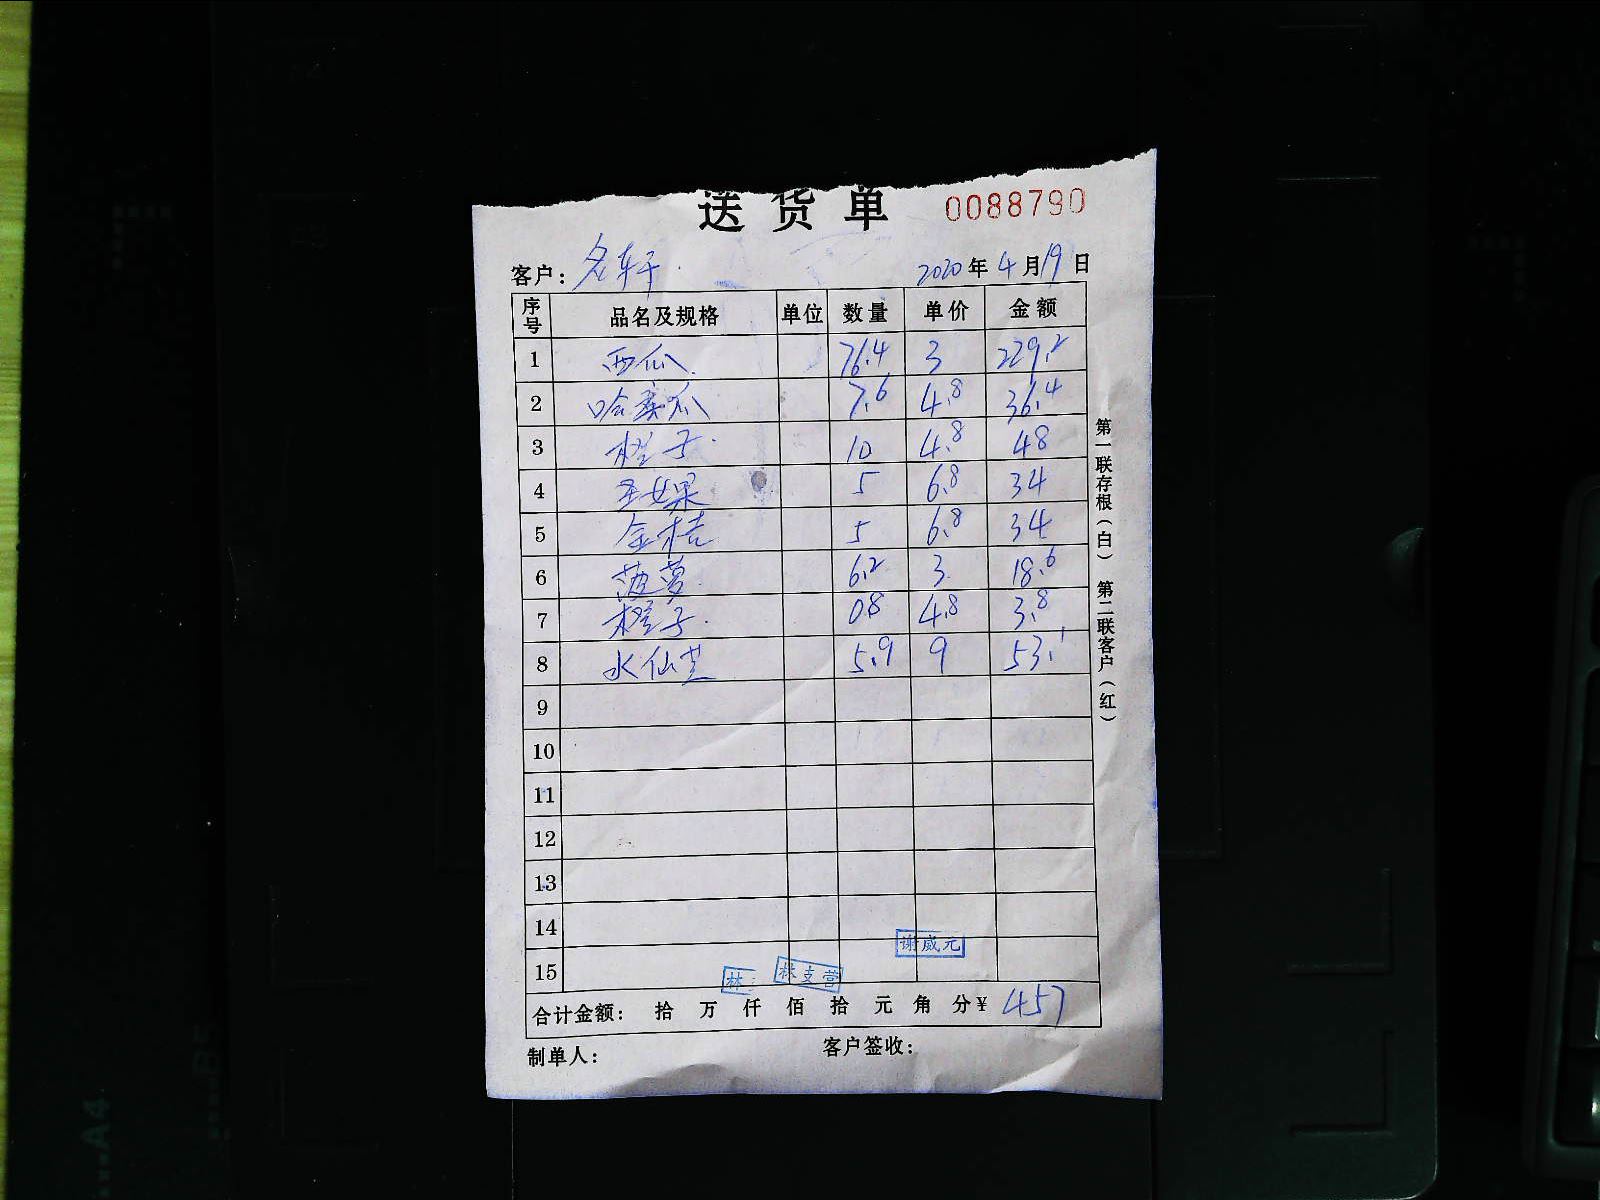 送货单 0088790
客户: 名轩 2020年4月19日
序号 品名及规格 单位 数量 单价 金额
1 西瓜 76.4 3 229.2
2 哈蜜瓜 7.6 4.8 36.4
3 橙子 10 4.8 48
4 圣女果 5 6.8 34
5 金桔 5 6.8 34
6 菠萝 6.2 3 18.6
7 橙子 08 4.8 3.8
8 水仙芒 5.9 9 53.1
9
10
11
12
13
14
谢威元
15
林 林支营
合计金额: 拾 万 仟 佰 拾 元 角 分¥ 457
制单人: 客户签收:
第一联存根(白) 第二联客户(红)
A4